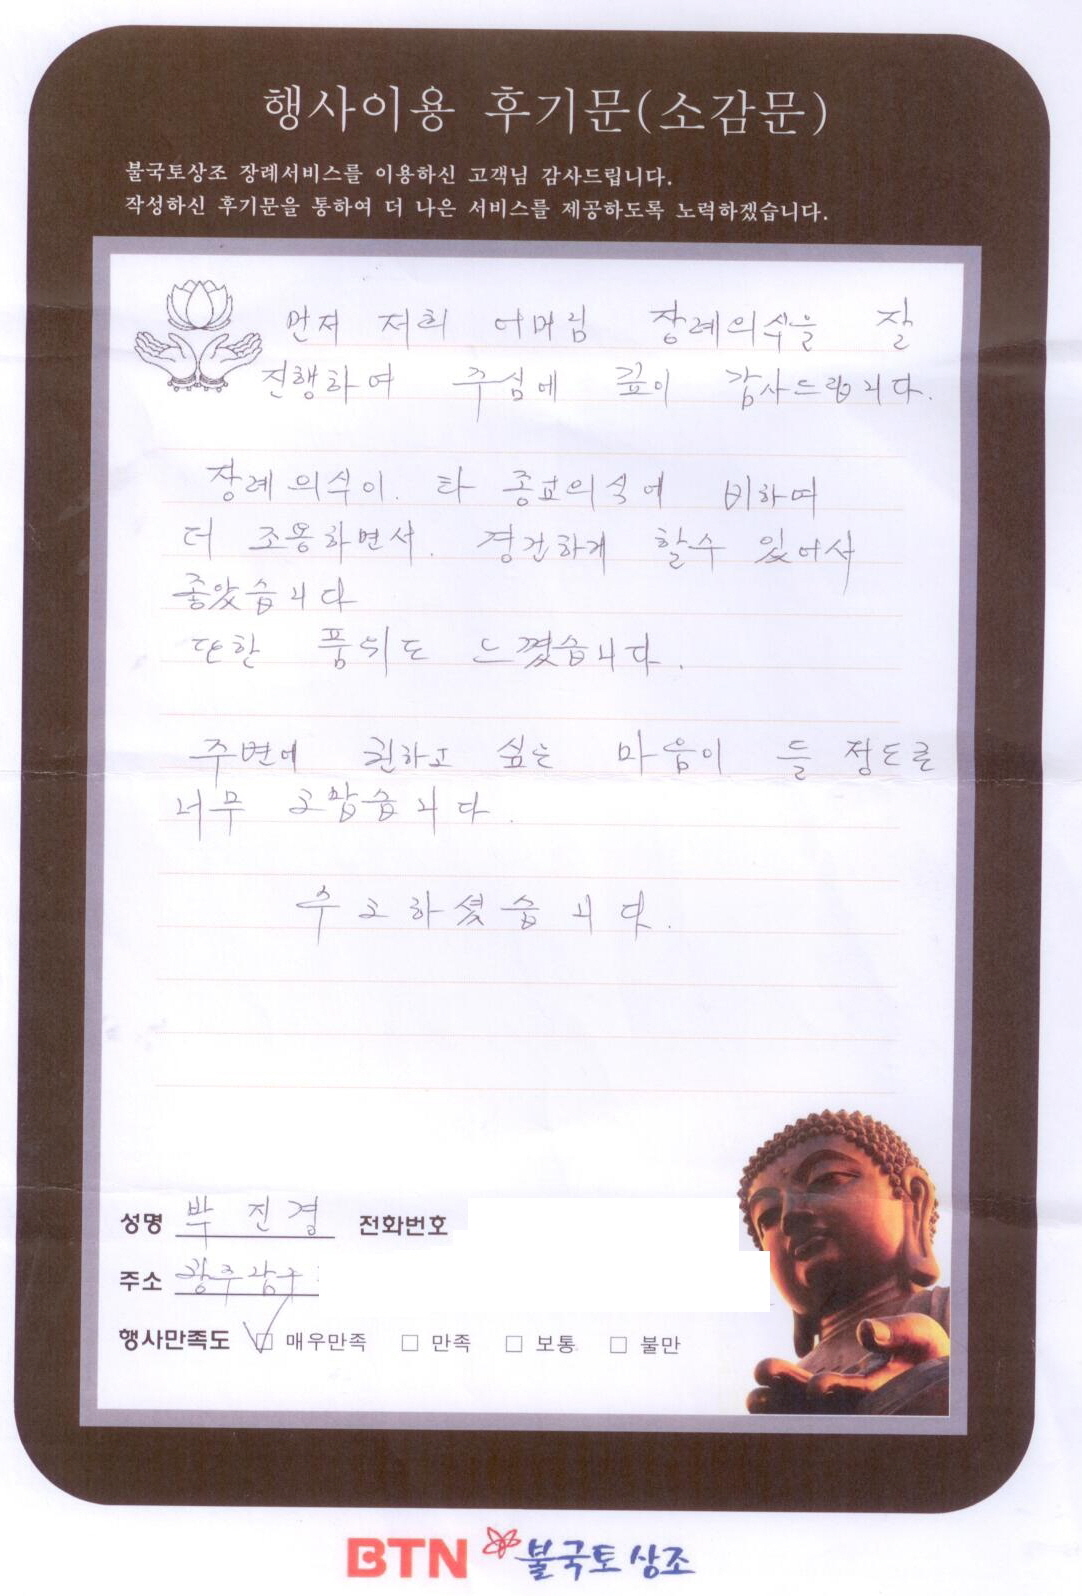 행사이용 후기문(소감문)
불국토상조 장례서비스를 이용하신 고객님 감사드립니다.
작성하신 후기문을 통하여 더 나은 서비스를 제공하도록 노력하겠습니다.
먼저 저희 어머님 장례의식을 잘
진행하여 주심에 깊이 감사드립니다.
장례의식이. 타 종교의식에 비하여
더 조용하면서. 경건하게 할수 있어서
좋았습니다
또한 품위도 느꼈습니다.
주변에 권하고 싶은 마음이 들 정도로
너무 고맙습니다.
수고하셨습니다.
성명 박진경 전화번호
주소 광주 남구
행사만족도 ☑ 매우만족 □ 만족 □ 보통 □ 불만
BTN 불국토상조